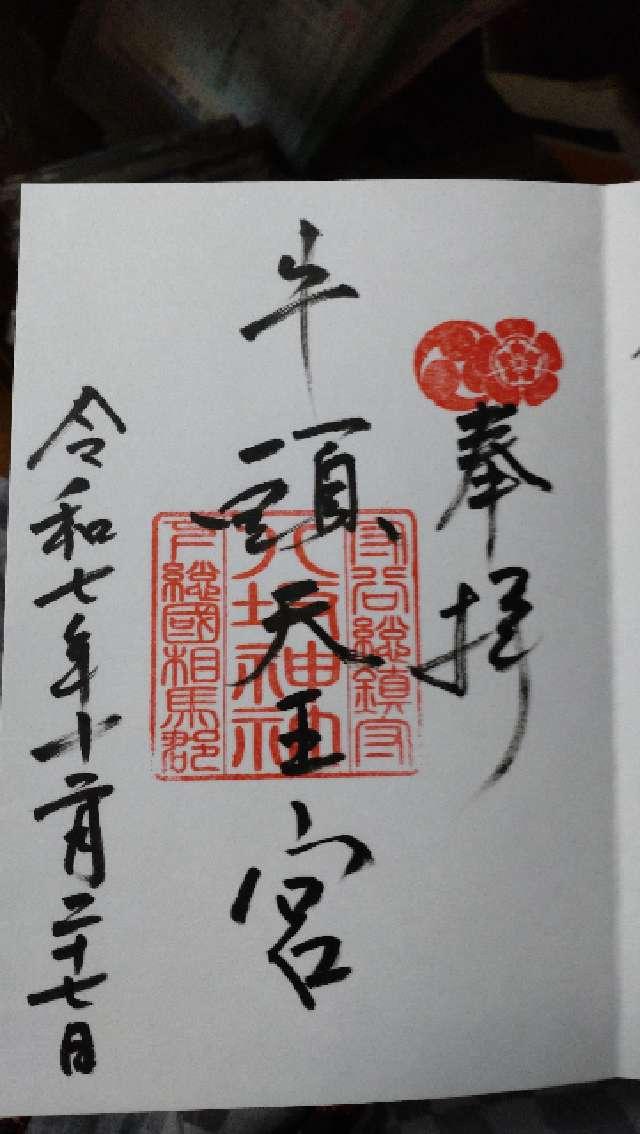 奉拝
守谷総鎮守
牛頭天王宮
八坂神社
下総國相馬郡
令和七年十一月二十七日